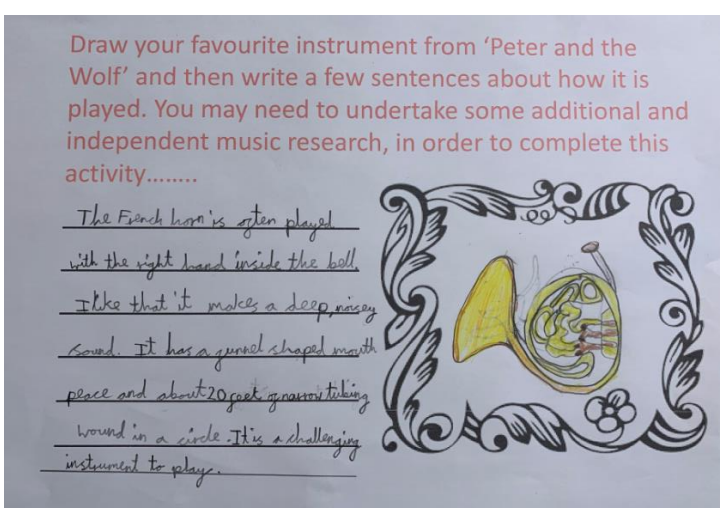 Draw your favourite instrument from ‘Peter and the
Wolf’ and then write a few sentences about how it is
played. You may need to undertake some additional and
independent music research, in order to complete this
activity........
The French horn is often played
with the right hand inside the bell.
I like that it makes a deep, noisey
sound. It has a funnel shaped mouth
peace and about 20 feet of narrow tubing
wound in a circle. It is a challenging
instrument to play.